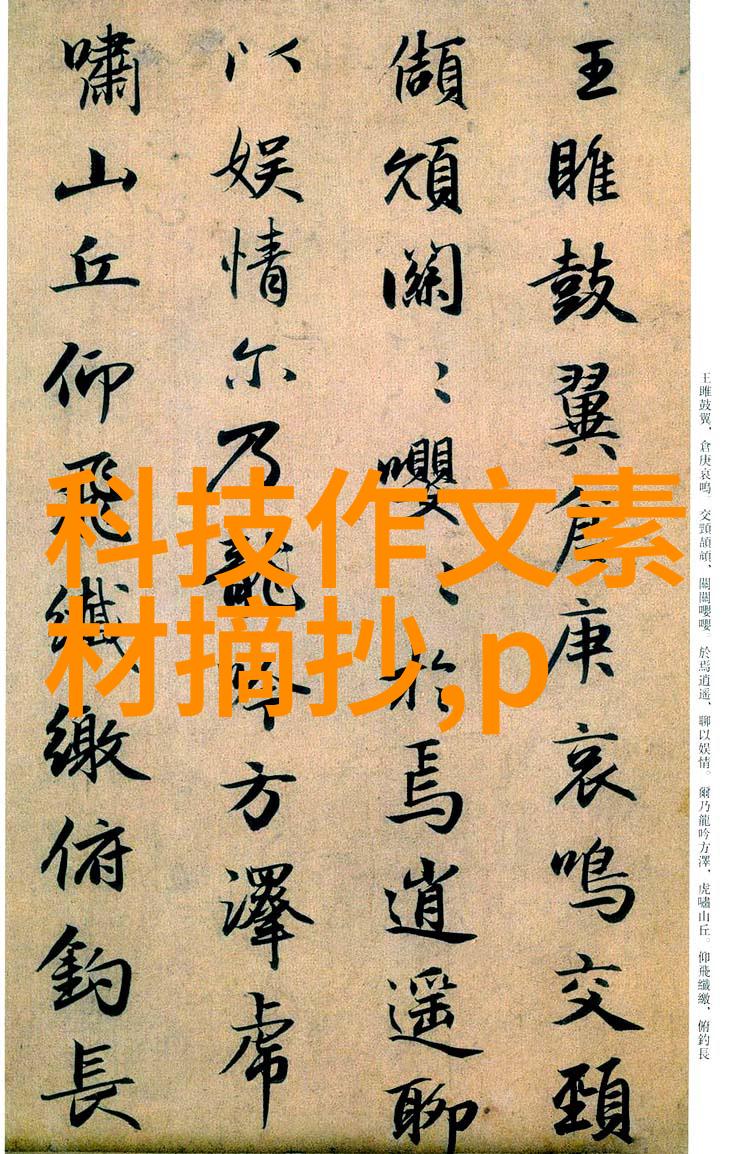 王雎鼓翼倉庚哀鳴交頸
頡頏關〻嚶〻於焉逍遥聊
以娱情尒乃龍吟方澤虎
嘯山丘仰飛纖繳俯釣長
科技作文素
材摘抄,p
王雎鼓翼、倉庚哀鳴。交頸頡頏、關關嚶嚶。於焉逍遥、聊以娱情。爾乃龍吟方澤、虎嘯山丘。仰飛纖繳、俯釣長